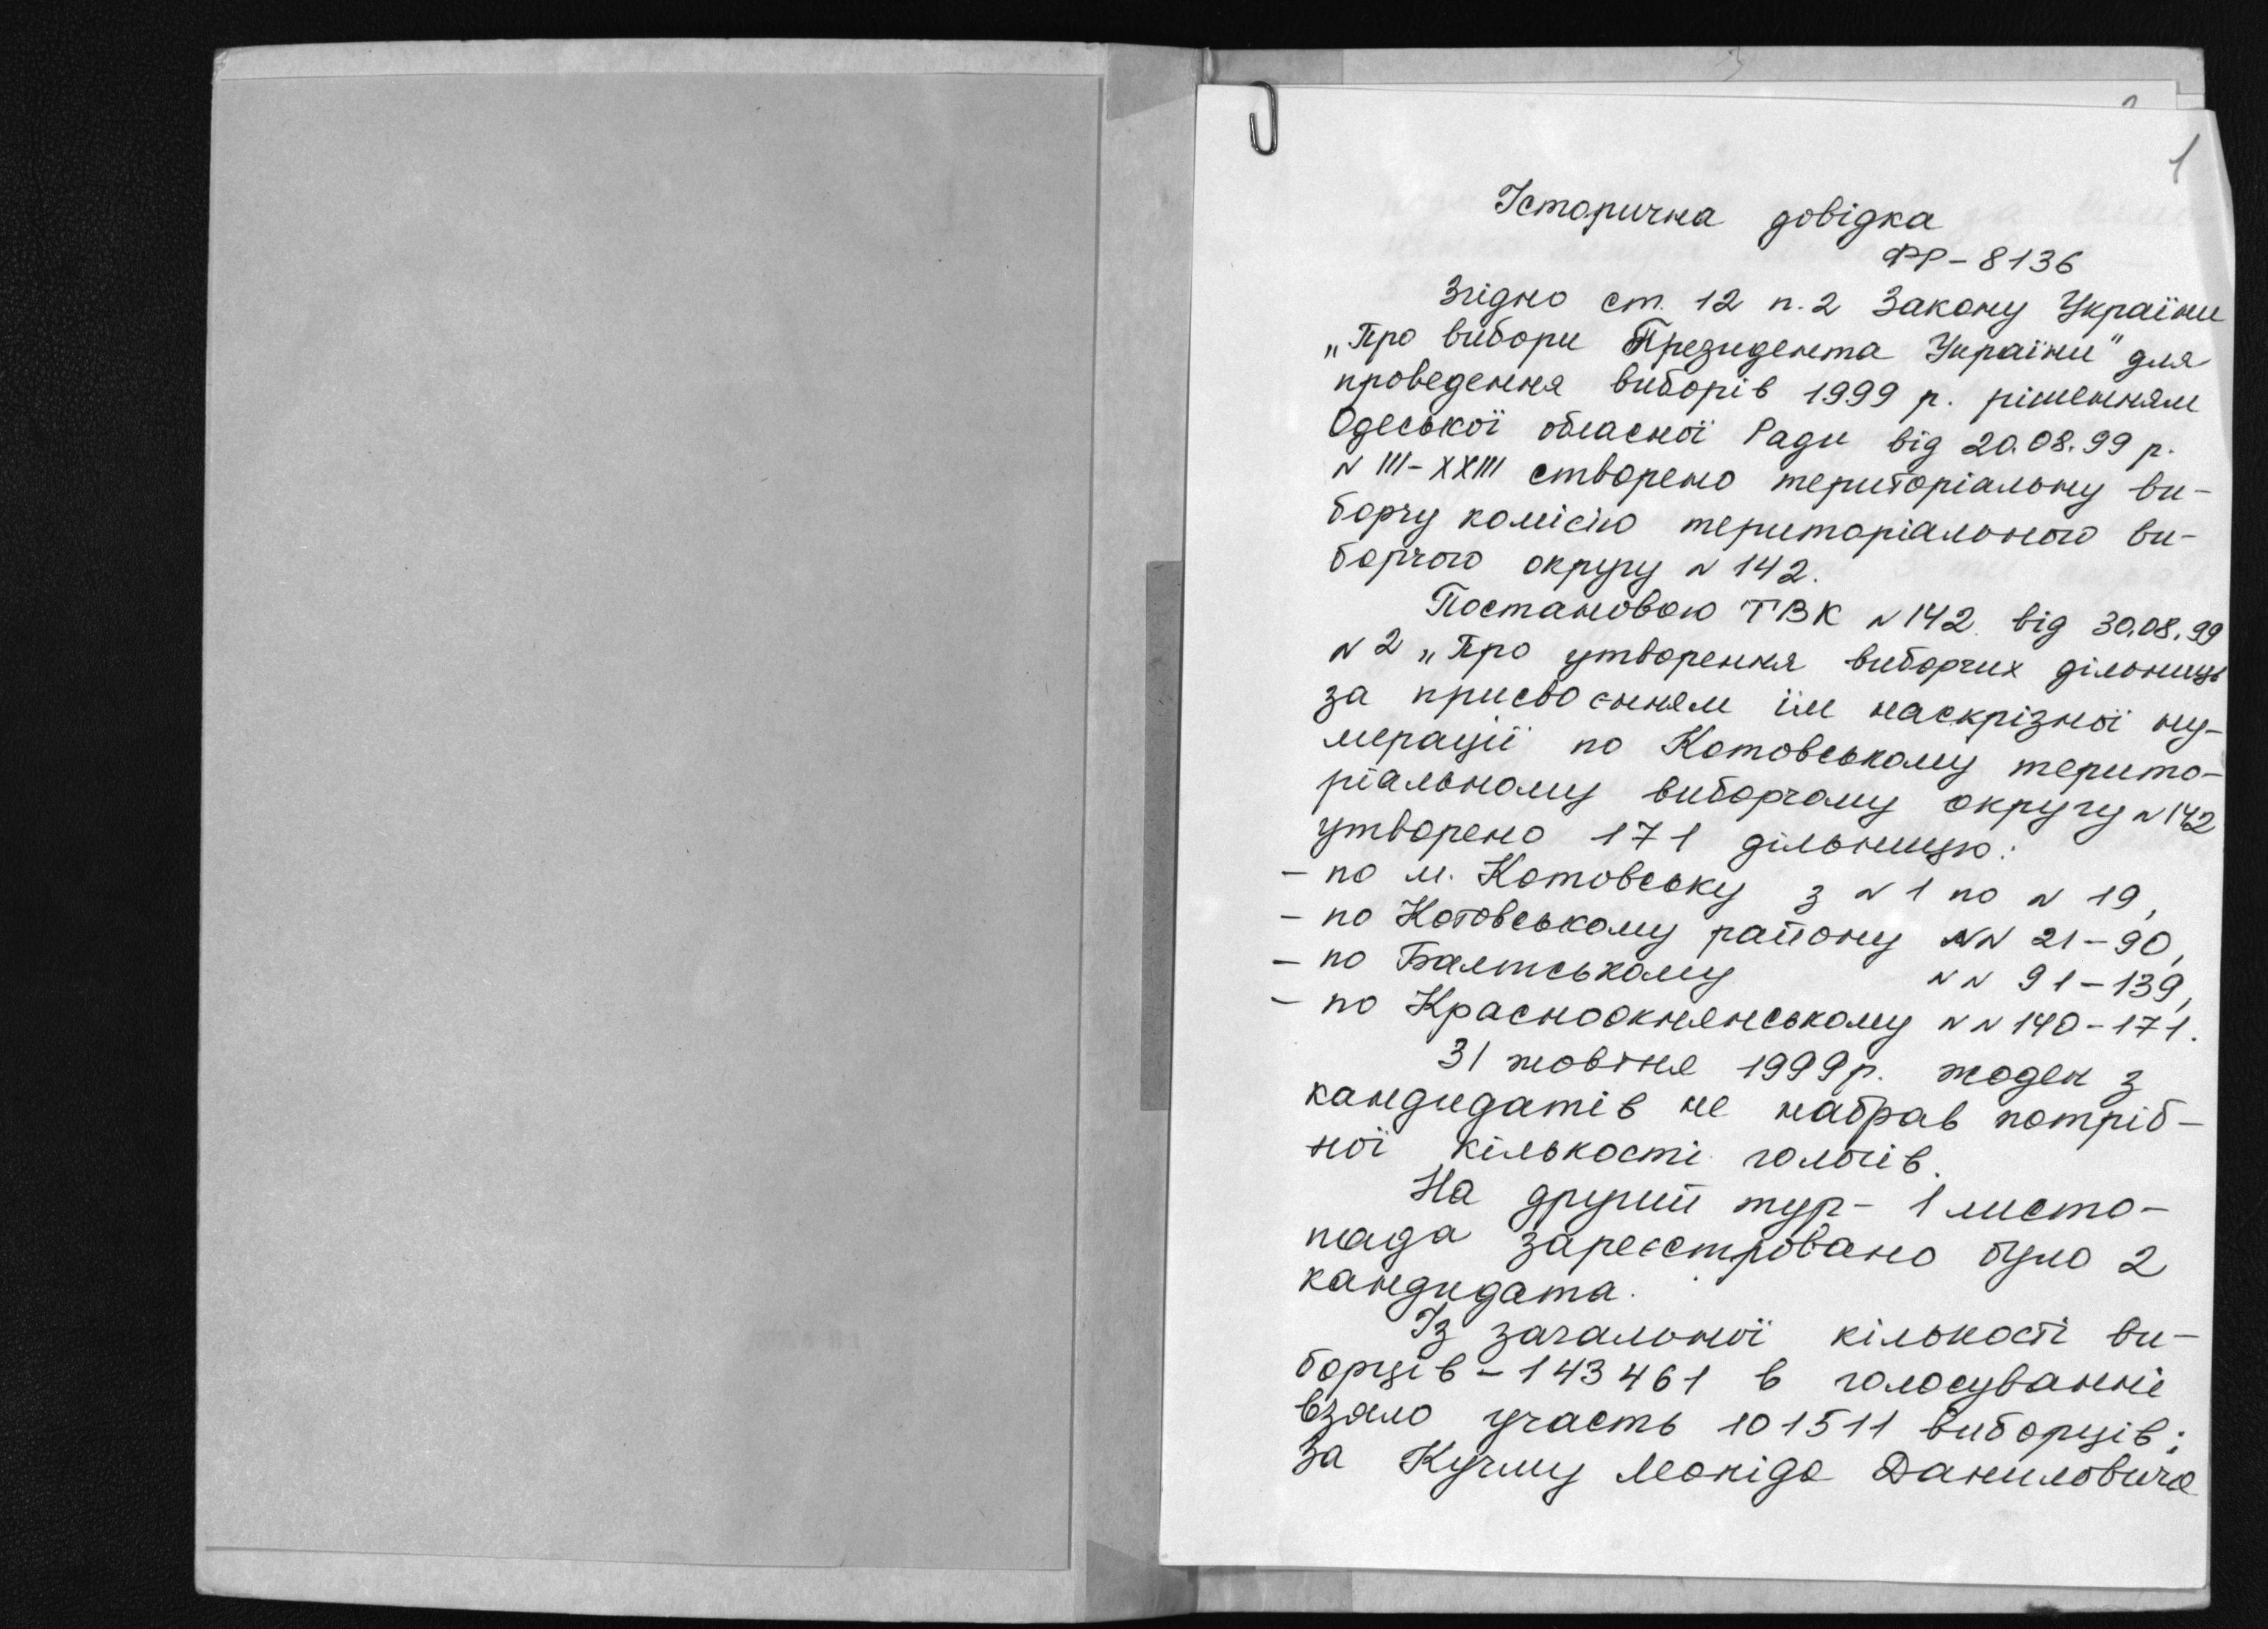 1
Історична довідка
ФР-8136
Згідно ст. 12 п.2 Закону України
„Про вибори Президента України" для
проведення виборів 1999 р. рішенням
Одеської обласної Ради від 20.08.99 р.
N III-XXIII створено територіальну ви-
борчу комісію територіального ви-
борчого округу N 142.
Постановою ТВК N 142 від 30.08.99
N 2 „Про утворення виборчих дільниць
за присвоєнням їм наскрізної ну-
мерації по Котовському терито-
ріальному виборчому округу N 142
утворено 171 дільницю:
- по м. Котовську з N 1 по N 19,
- по Котовському району NN 21-90,
- по Балтському NN 91-139,
- по Красноокнянському NN 140-171.
31 жовтня 1999 р. жоден з
кандидатів не набрав потріб-
ної кількості голосів.
На другий тур - 1 листо-
пада зареєстровано було 2
кандидата.
Із загальної кількості ви-
борців - 143461 в голосуванні
взяло участь 101511 виборців;
За Кучму Леоніда Даниловича